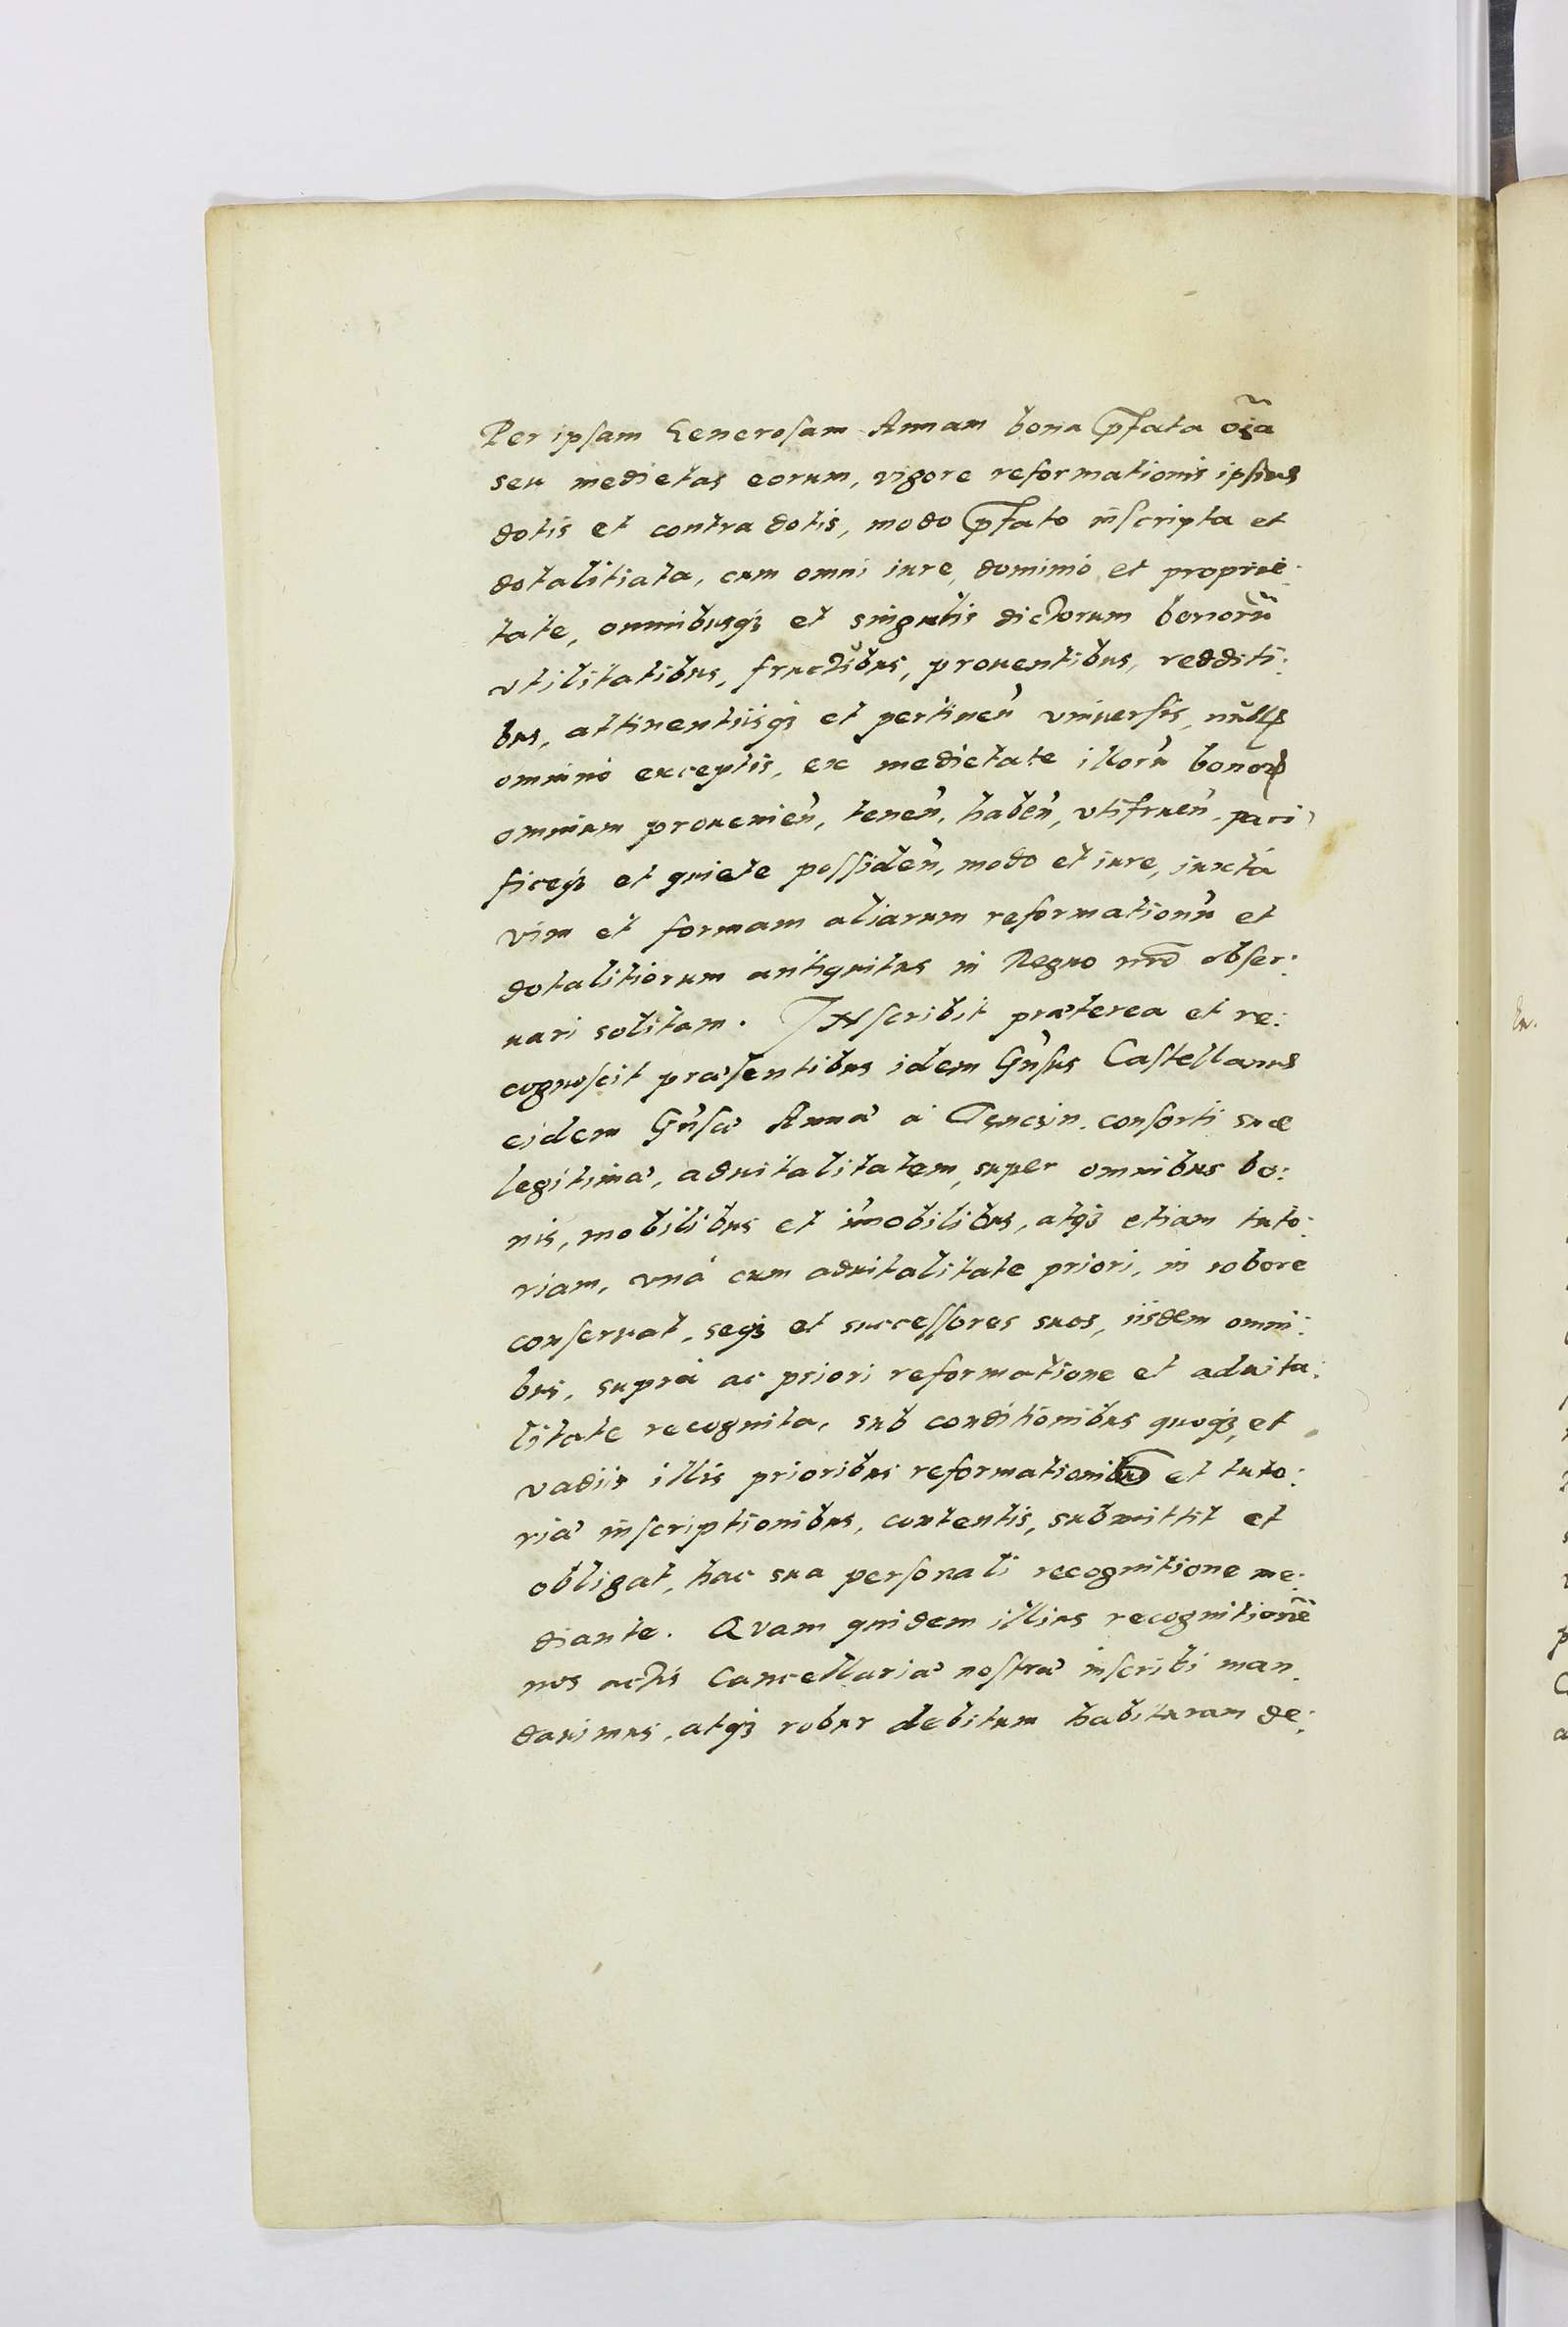 Per ipsam Generosam Annam bona p̃fata oĩa
seu medietas eorum, vigore reformationis ipsius
dotis et contradotis, modo p̃fato inscripta et
dotalitiata, cum omni iure, dominio et proprie:
tate, omnibusqꝫ et singulis dictorum bonorũ
vtilitatibus, fructibus, prouentibus, redditi:
bus, attinentiisqꝫ et pertinen̄ vniuersis, nullꝭ
omnino exceptis, ex medietate illorũ bonoꝝ
omnium prouenien̄, tenen̄, haben̄, vtifruen̄, paci
ficeqꝫ et quiete possiden̄, modo et iure, iuxta
vim et formam aliarum reformationũ et
dotalitiorum antiquitus in Regno nr̃o obser:
uari solitam. INscribit præterea et re:
cognoscit præsentibus idem Gn̄sus Castellanus
eidem Gn̄sæ Annæ à Tęncżin. consorti suæ
legitimæ, aduitalitatem, super omnibus bo:
nis, mobilibus et im̄obilibus, atqꝫ etiam tuto:
riam, vnà cum aduitalitate priori, in robore
conseruat, seqꝫ et successores suos, iisdem omni:
bus, suprà ac priori reformatione et aduita:
litate recognita, sub conditionibus quoqꝫ, et
vadiis illis prioribus reformationibus et tuto:
riæ inscriptionibus, contentis, submittit et
obligat, hac sua personali recognitione me:
diante. Quam quidem illius recognitionẽ
nos actis Cancellariæ nostræ inscribi man:
dauimus, atqꝫ robur debitum habituram de: